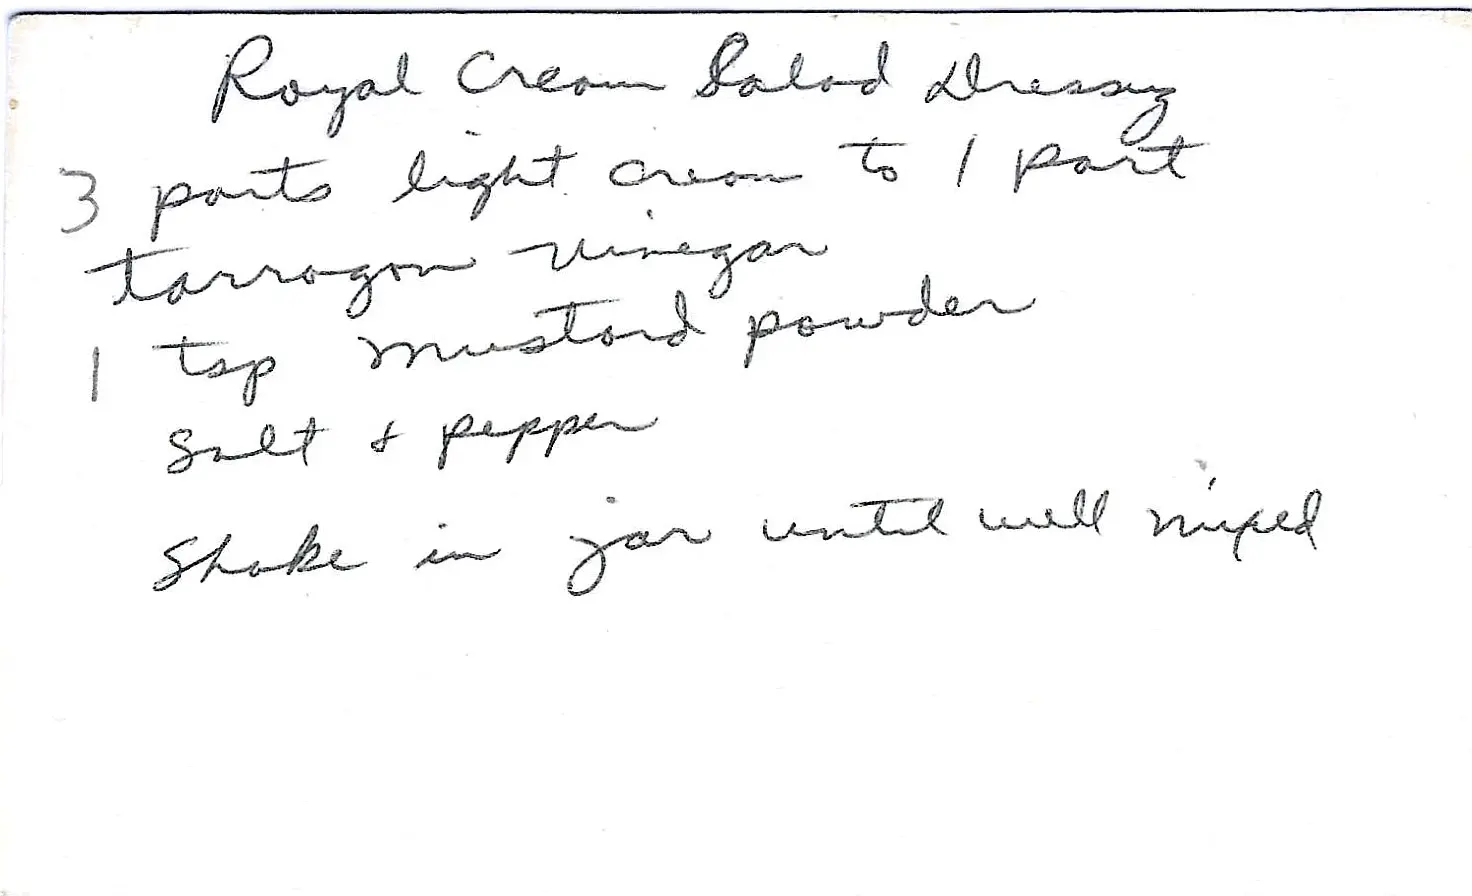 Royal Cream Salad Dressing
3 parts light cream to 1 part
tarragon vinegar
1 tsp mustard powder
Salt & pepper
Shake in jar until well mixed